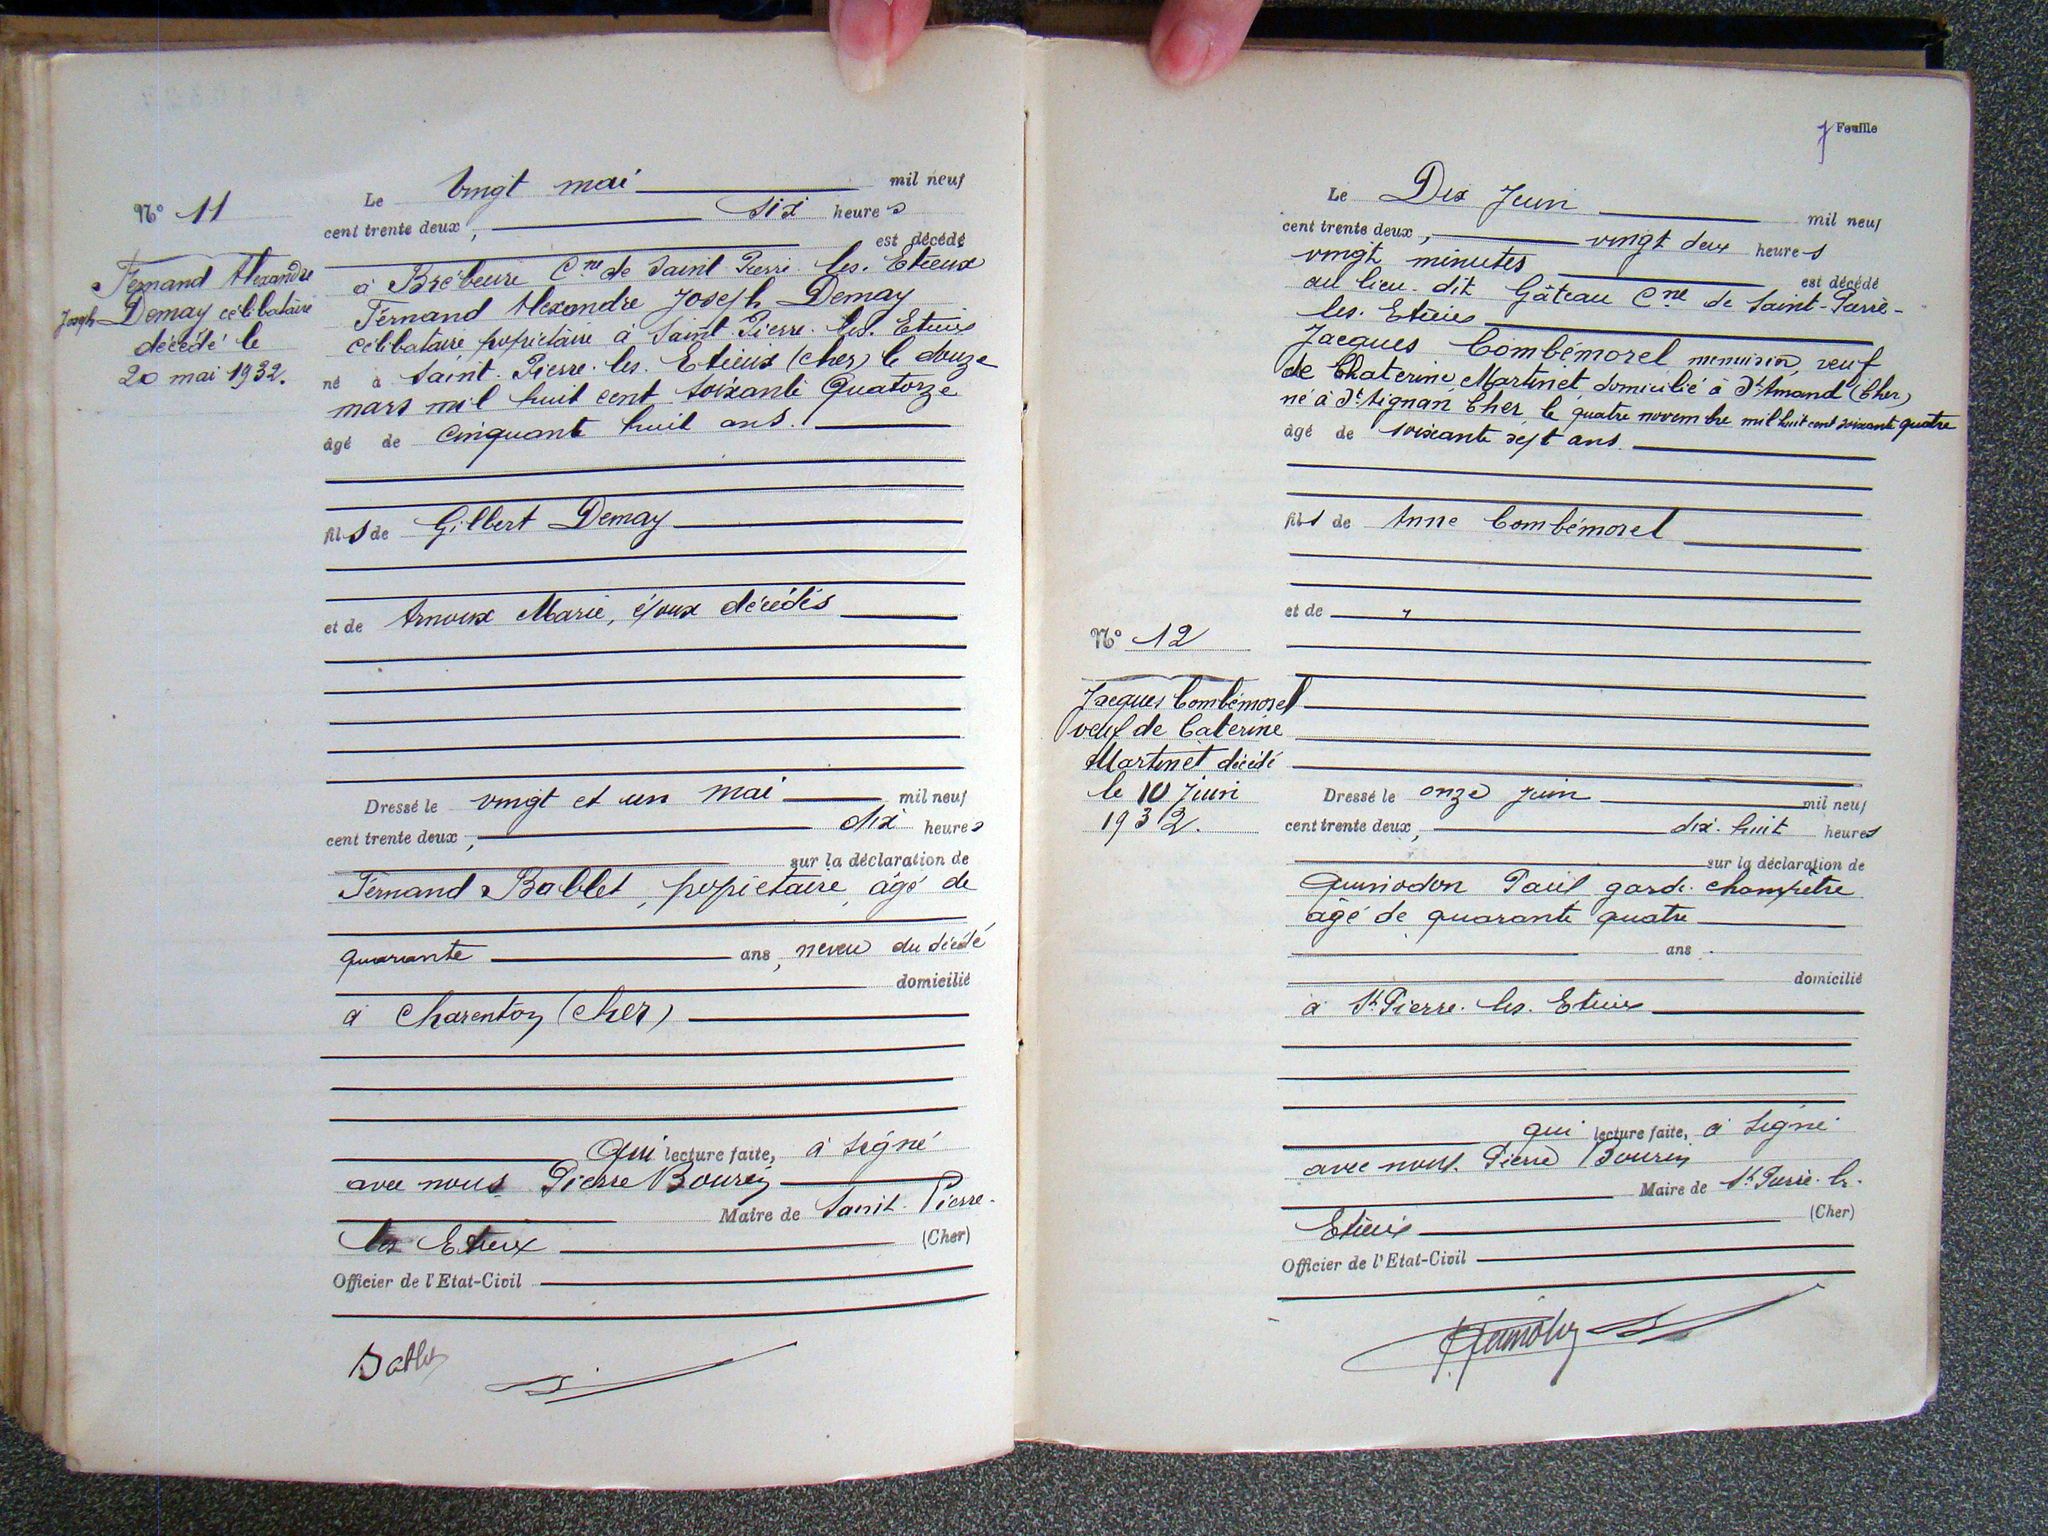 N° 11
Fernand Alexandre
Joseph Demay célibataire
décédé le
20 mai 1932.
Le vingt mai mil neuf
cent trente deux, six heures
est décédé
à Brébeure Cne de Saint Pierre les Etieux
Fernand Alexandre Joseph Demay
célibataire propriétaire à Saint Pierre les Etieux
né à Saint Pierre les Etieux (Cher) le douze
mars mil huit cent soixante quatorze
âgé de cinquante huit ans.
fils de Gilbert Demay
et de Arnoux Marie, époux décédés
Dressé le vingt et un mai mil neuf
cent trente deux, dix heures
sur la déclaration de
Fernand Bablet, propriétaire, âgé de
quarante ans, neveu du décédé
domicilié
à Charenton (Cher)
qui lecture faite, à signé
avec nous Pierre Bourin
Maire de Saint-Pierre-
les Etieux (Cher)
Officier de l'Etat-Civil
7 Feuille
N° 12
Jacques Combémorel
veuf de Caterine
Martinet décédé
le 10 juin
1932.
Le Dix Juin mil neuf
cent trente deux, vingt deux heures
vingt minutes est décédé
au lieu-dit Gâteau Cne de Saint-Pierre-
les-Etieux
Jacques Combémorel menuisier, veuf
de Chaterine Martinet domicilié à St Amand (Cher)
né à St Aignan Cher le quatre novembre mil huit cent soixante quatre
âgé de soixante sept ans.
fils de Anne Combémorel
et de
Dressé le onze juin mil neuf
cent trente deux, dix-huit heures
sur la déclaration de
Paul garde-champêtre
âgé de quarante quatre
ans
domicilié
à St Pierre-les-Etieux
qui lecture faite, à signé
avec nous Pierre Bourin
Maire de St Pierre-les-
Etieux (Cher)
Officier de l'Etat-Civil